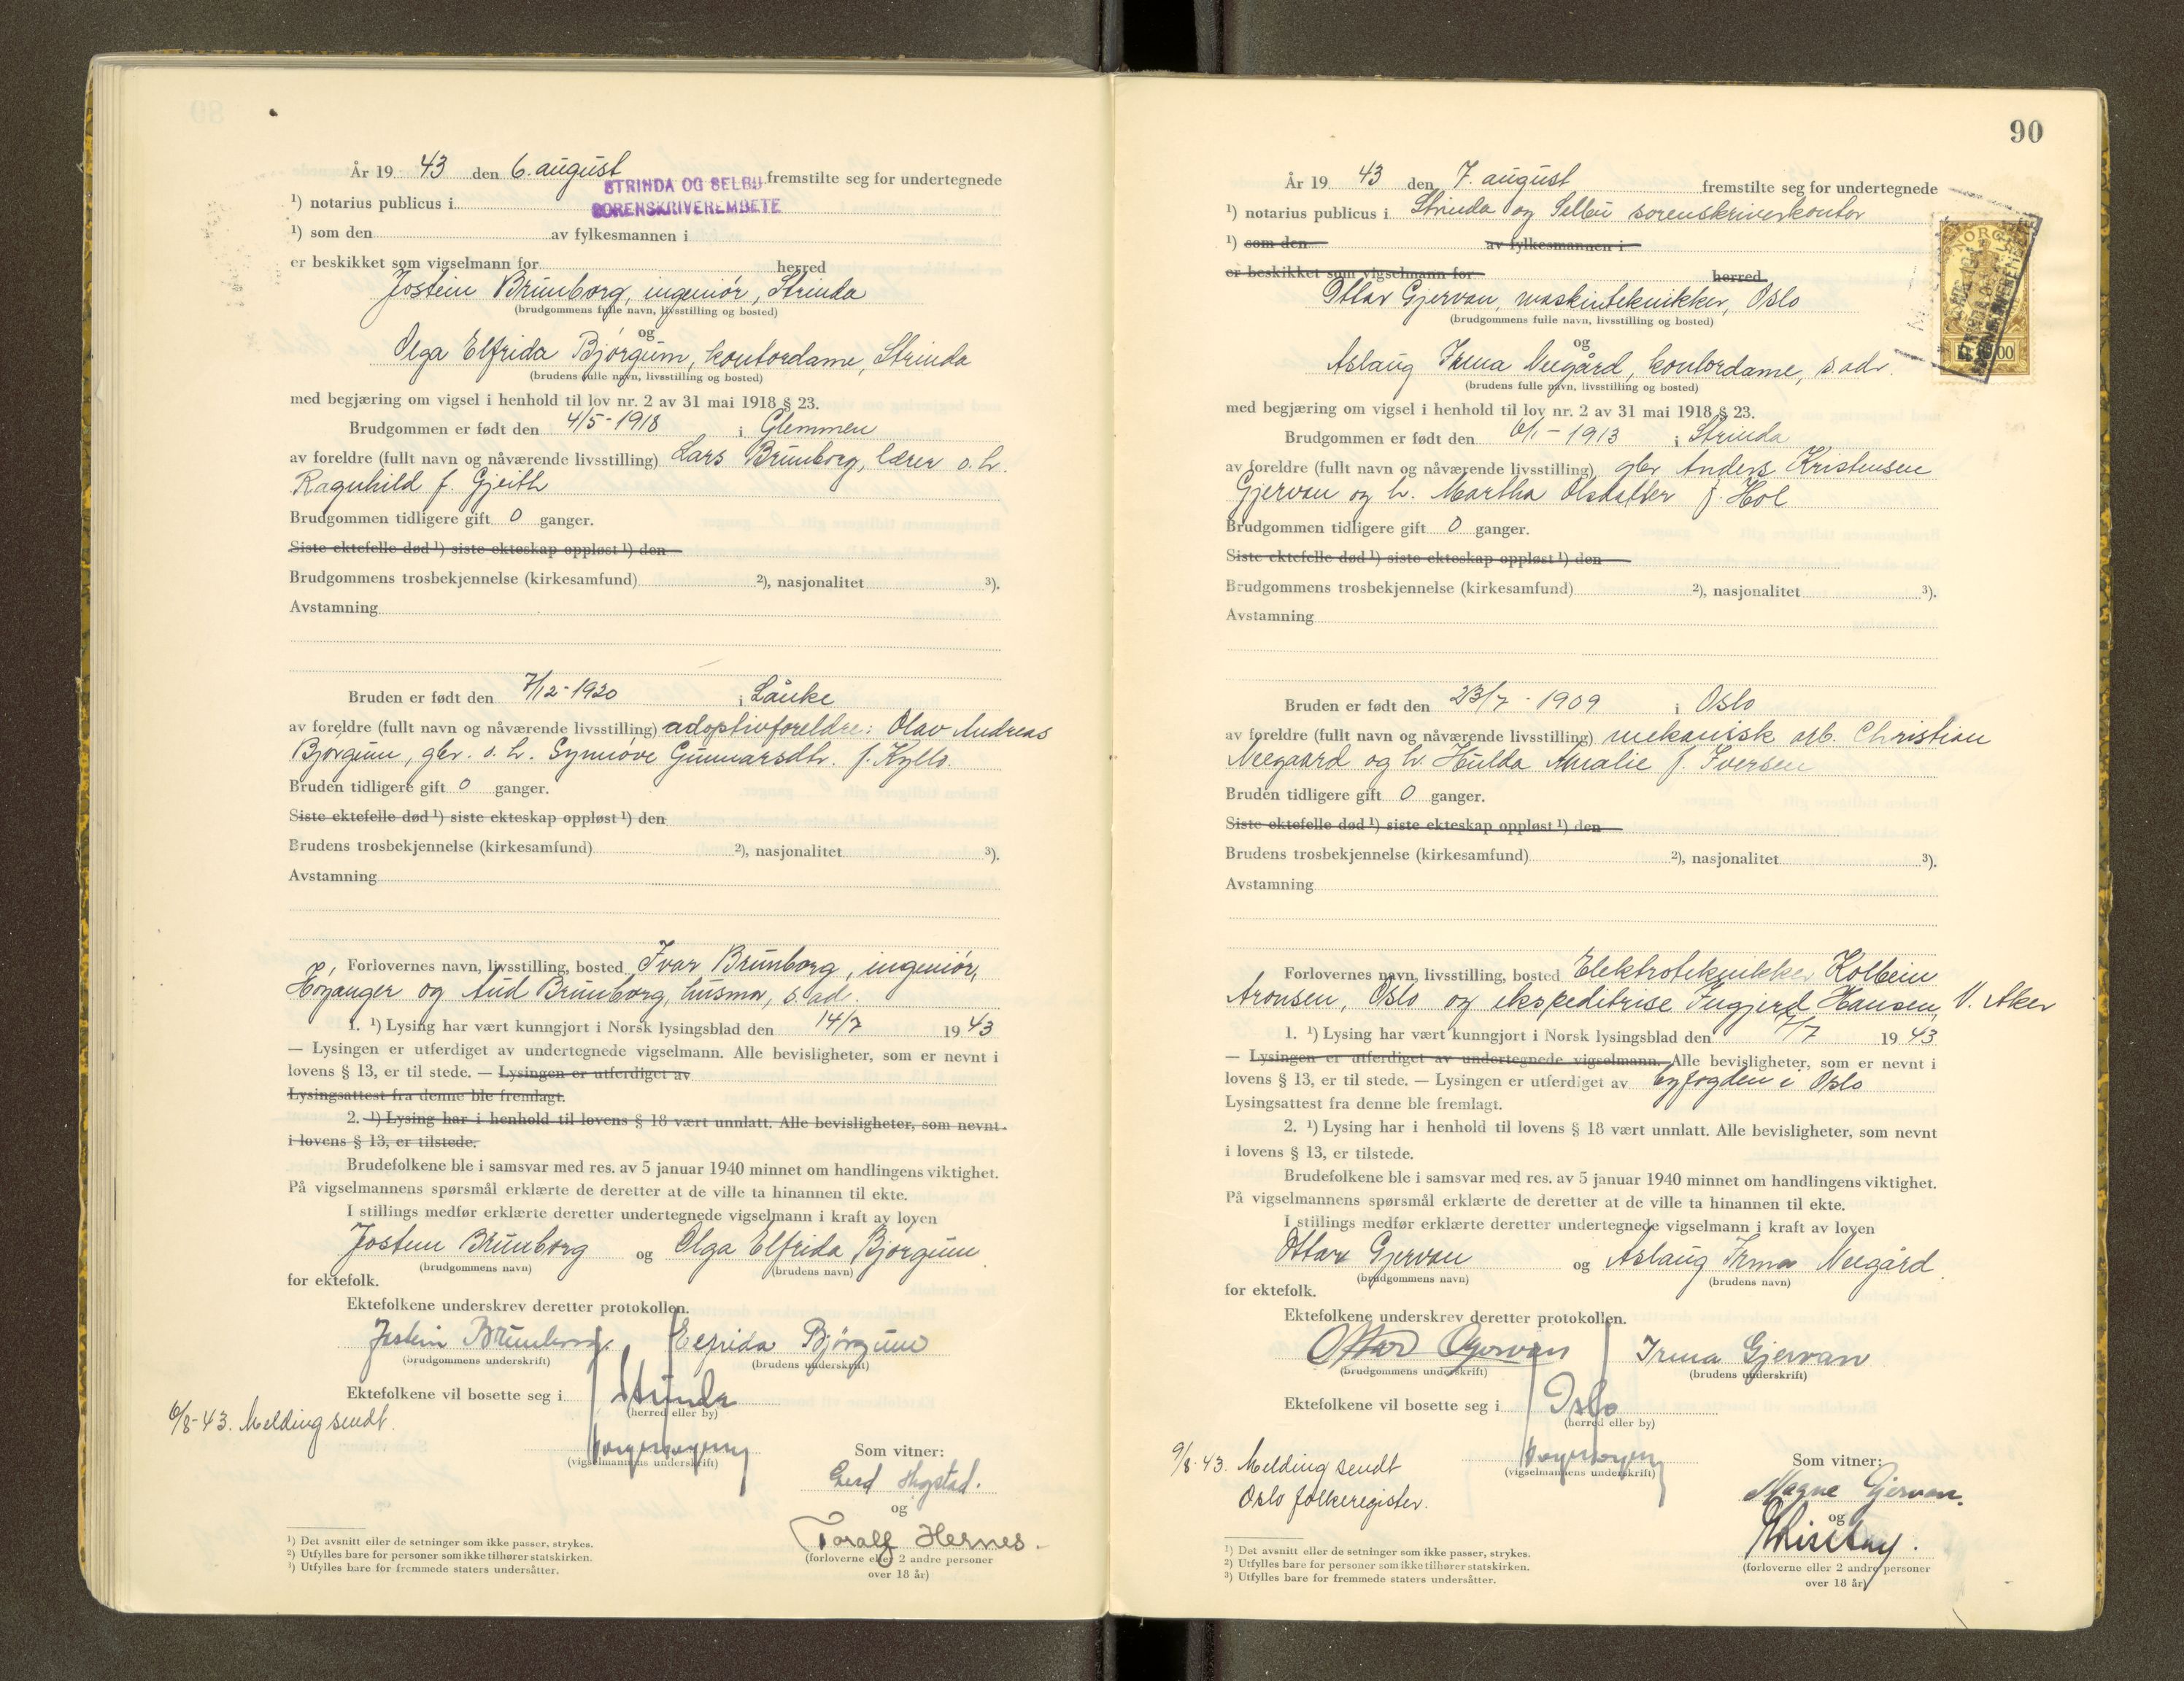 År 19 43 den 6. august fremstilte seg for undertegnede
STRINDA OG SELBU
SORENSKRIVEREMBETE
¹) notarius publicus i
¹) som den av fylkesmannen i
er beskikket som vigselmann for herred
Jostein Brunborg, ingeniør, Strinda
(brudgommens fulle navn, livsstilling og bosted)
og
Olga Elfrida Bjørgum, kontordame, Strinda
(brudens fulle navn, livsstilling og bosted)
med begjæring om vigsel i henhold til lov nr. 2 av 31 mai 1918 § 23.
Brudgommen er født den 4/5-1918 i Glemmen
av foreldre (fullt navn og nåværende livsstilling) Lars Brunborg, lærer o. h.
Ragnhild f. Gjeith
Brudgommen tidligere gift 0 ganger.
Siste ektefelle død ¹) siste ekteskap oppløst ¹) den
Brudgommens trosbekjennelse (kirkesamfund) ²), nasjonalitet ³).
Avstamning
Bruden er født den 7/12-1920 i Lånke
av foreldre (fullt navn og nåværende livsstilling) adoptivforeldre: Olav Andreas
Bjørgum, gbr. o. h. Synnøve Gunnarsdtr. f. Kyllo.
Bruden tidligere gift 0 ganger.
Siste ektefelle død ¹) siste ekteskap oppløst ¹) den
Brudens trosbekjennelse (kirkesamfund) ²), nasjonalitet ³).
Avstamning
Forlovernes navn, livsstilling, bosted Ivar Brunborg, ingeniør,
Høyanger og Aud Brunborg, husmor, s. ad.
1. ¹) Lysing har vært kunngjort i Norsk lysingsblad den 14/7 19 43
— Lysingen er utferdiget av undertegnede vigselmann. Alle bevisligheter, som er nevnt i
lovens § 13, er til stede. — Lysingen er utferdiget av
Lysingsattest fra denne ble fremlagt.
2. ¹) Lysing har i henhold til lovens § 18 vært unnlatt. Alle bevisligheter, som nevnt
i lovens § 13, er tilstede.
Brudefolkene ble i samsvar med res. av 5 januar 1940 minnet om handlingens viktighet.
På vigselmannens spørsmål erklærte de deretter at de ville ta hinannen til ekte.
I stillings medfør erklærte deretter undertegnede vigselmann i kraft av loven
Jostein Brunborg og Olga Elfrida Bjørgum
(brudgommens navn) (brudens navn)
for ektefolk.
Ektefolkene underskrev deretter protokollen.
Jostein Brunborg. Elfrida Bjørgum
(brudgommens underskrift) (brudens underskrift)
Ektefolkene vil bosette seg i Strinda
(herred eller by)
6/8-43. Melding sendt.
(vigselmannens underskrift)
Som vitner:
Gerd
og
Toralf Hernes.
(forloverne eller 2 andre personer
over 18 år)
¹) Det avsnitt eller de setninger som ikke passer, strykes.
²) Utfylles bare for personer som ikke tilhører statskirken.
³) Utfylles bare for fremmede staters undersåtter.
90
År 19 43 den 7. august fremstilte seg for undertegnede
¹) notarius publicus i Strinda og Selbu sorenskriverkontor
¹) som den av fylkesmannen i
er beskikket som vigselmann for herred
NORGE
00
Ottar Gjervan, maskintekniker, Oslo
(brudgommens fulle navn, livsstilling og bosted)
og
Aslaug Irma Neegård, kontordame, s adr.
(brudens fulle navn, livsstilling og bosted)
med begjæring om vigsel i henhold til lov nr. 2 av 31 mai 1918 § 23.
Brudgommen er født den 6/1-1913 i Strinda
av foreldre (fullt navn og nåværende livsstilling) gbr Anders Kristensen
Gjervan og h. Martha Olsdatter f. Hol
Brudgommen tidligere gift 0 ganger.
Siste ektefelle død ¹) siste ekteskap oppløst ¹) den
Brudgommens trosbekjennelse (kirkesamfund) ²), nasjonalitet ³).
Avstamning
Bruden er født den 23/7-1909 i Oslo
av foreldre (fullt navn og nåværende livsstilling) mekanisk arb. Christian
Neegaard og h. Hulda Amalie f. Iversen
Bruden tidligere gift 0 ganger.
Siste ektefelle død ¹) siste ekteskap oppløst ¹) den
Brudens trosbekjennelse (kirkesamfund) ²), nasjonalitet ³).
Avstamning
Forlovernes navn, livsstilling, bosted Elektrotekniker Kolbein
Aronsen, Oslo og ekspeditrise Ingjerd Hansen, V. Aker
1. ¹) Lysing har vært kunngjort i Norsk lysingsblad den 7/7 19 43
— Lysingen er utferdiget av undertegnede vigselmann. Alle bevisligheter, som er nevnt i
lovens § 13, er til stede. — Lysingen er utferdiget av byfogden i Oslo
Lysingsattest fra denne ble fremlagt.
2. ¹) Lysing har i henhold til lovens § 18 vært unnlatt. Alle bevisligheter, som nevnt
i lovens § 13, er tilstede.
Brudefolkene ble i samsvar med res. av 5 januar 1940 minnet om handlingens viktighet.
På vigselmannens spørsmål erklærte de deretter at de ville ta hinannen til ekte.
I stillings medfør erklærte deretter undertegnede vigselmann i kraft av loven
Ottar Gjervan og Aslaug Irma Neegård.
(brudgommens navn) (brudens navn)
for ektefolk.
Ektefolkene underskrev deretter protokollen.
Ottar Gjervan Irma Gjervan
(brudgommens underskrift) (brudens underskrift)
Ektefolkene vil bosette seg i Oslo
(herred eller by)
9/8-43. Melding sendt
Oslo folkeregister.
(vigselmannens underskrift)
Som vitner:
Magne Gjervan.
og
(forloverne eller 2 andre personer
over 18 år)
¹) Det avsnitt eller de setninger som ikke passer, strykes.
²) Utfylles bare for personer som ikke tilhører statskirken.
³) Utfylles bare for fremmede staters undersåtter.